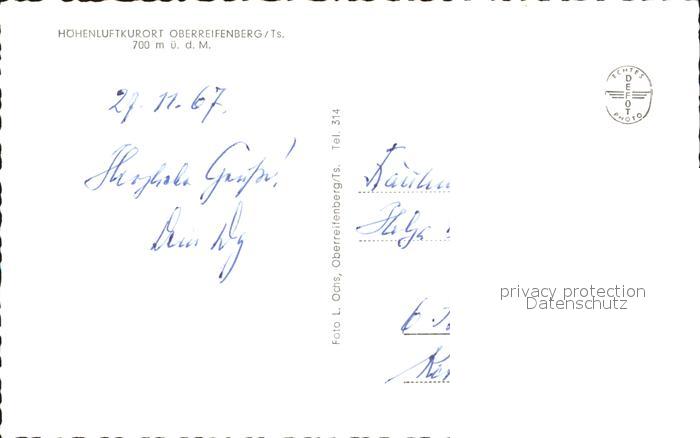 HÖHENLUFTKURORT OBERREIFENBERG/Ts.
700 m ü. d. M.
27. 11. 67.
Herzliche Grüße!
Dein
Foto L. Ochs, Oberreifenberg/Ts. Tel. 314
ECHTES
DEFOT
PHOTO
Fräulein
Helga
6
privacy protection
Datenschutz